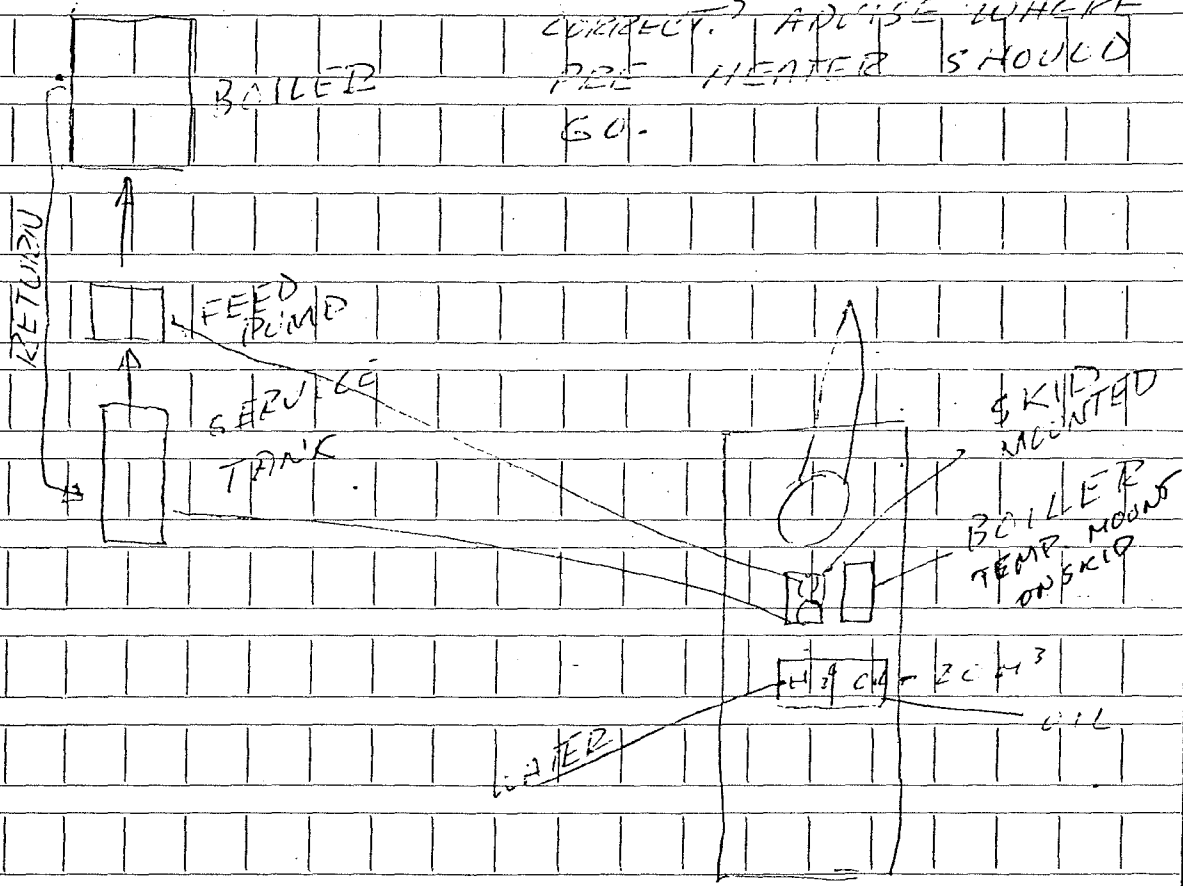 CORRECT? ADVISE WHERE
PRE HEATER SHOULD
GO.
BOILER
RETURN
FEED
PUMP
SERVICE
TANK
SKID
MOUNTED
BOILER
TEMP. MOUNT
ON SKID
M³
OIL
WATER